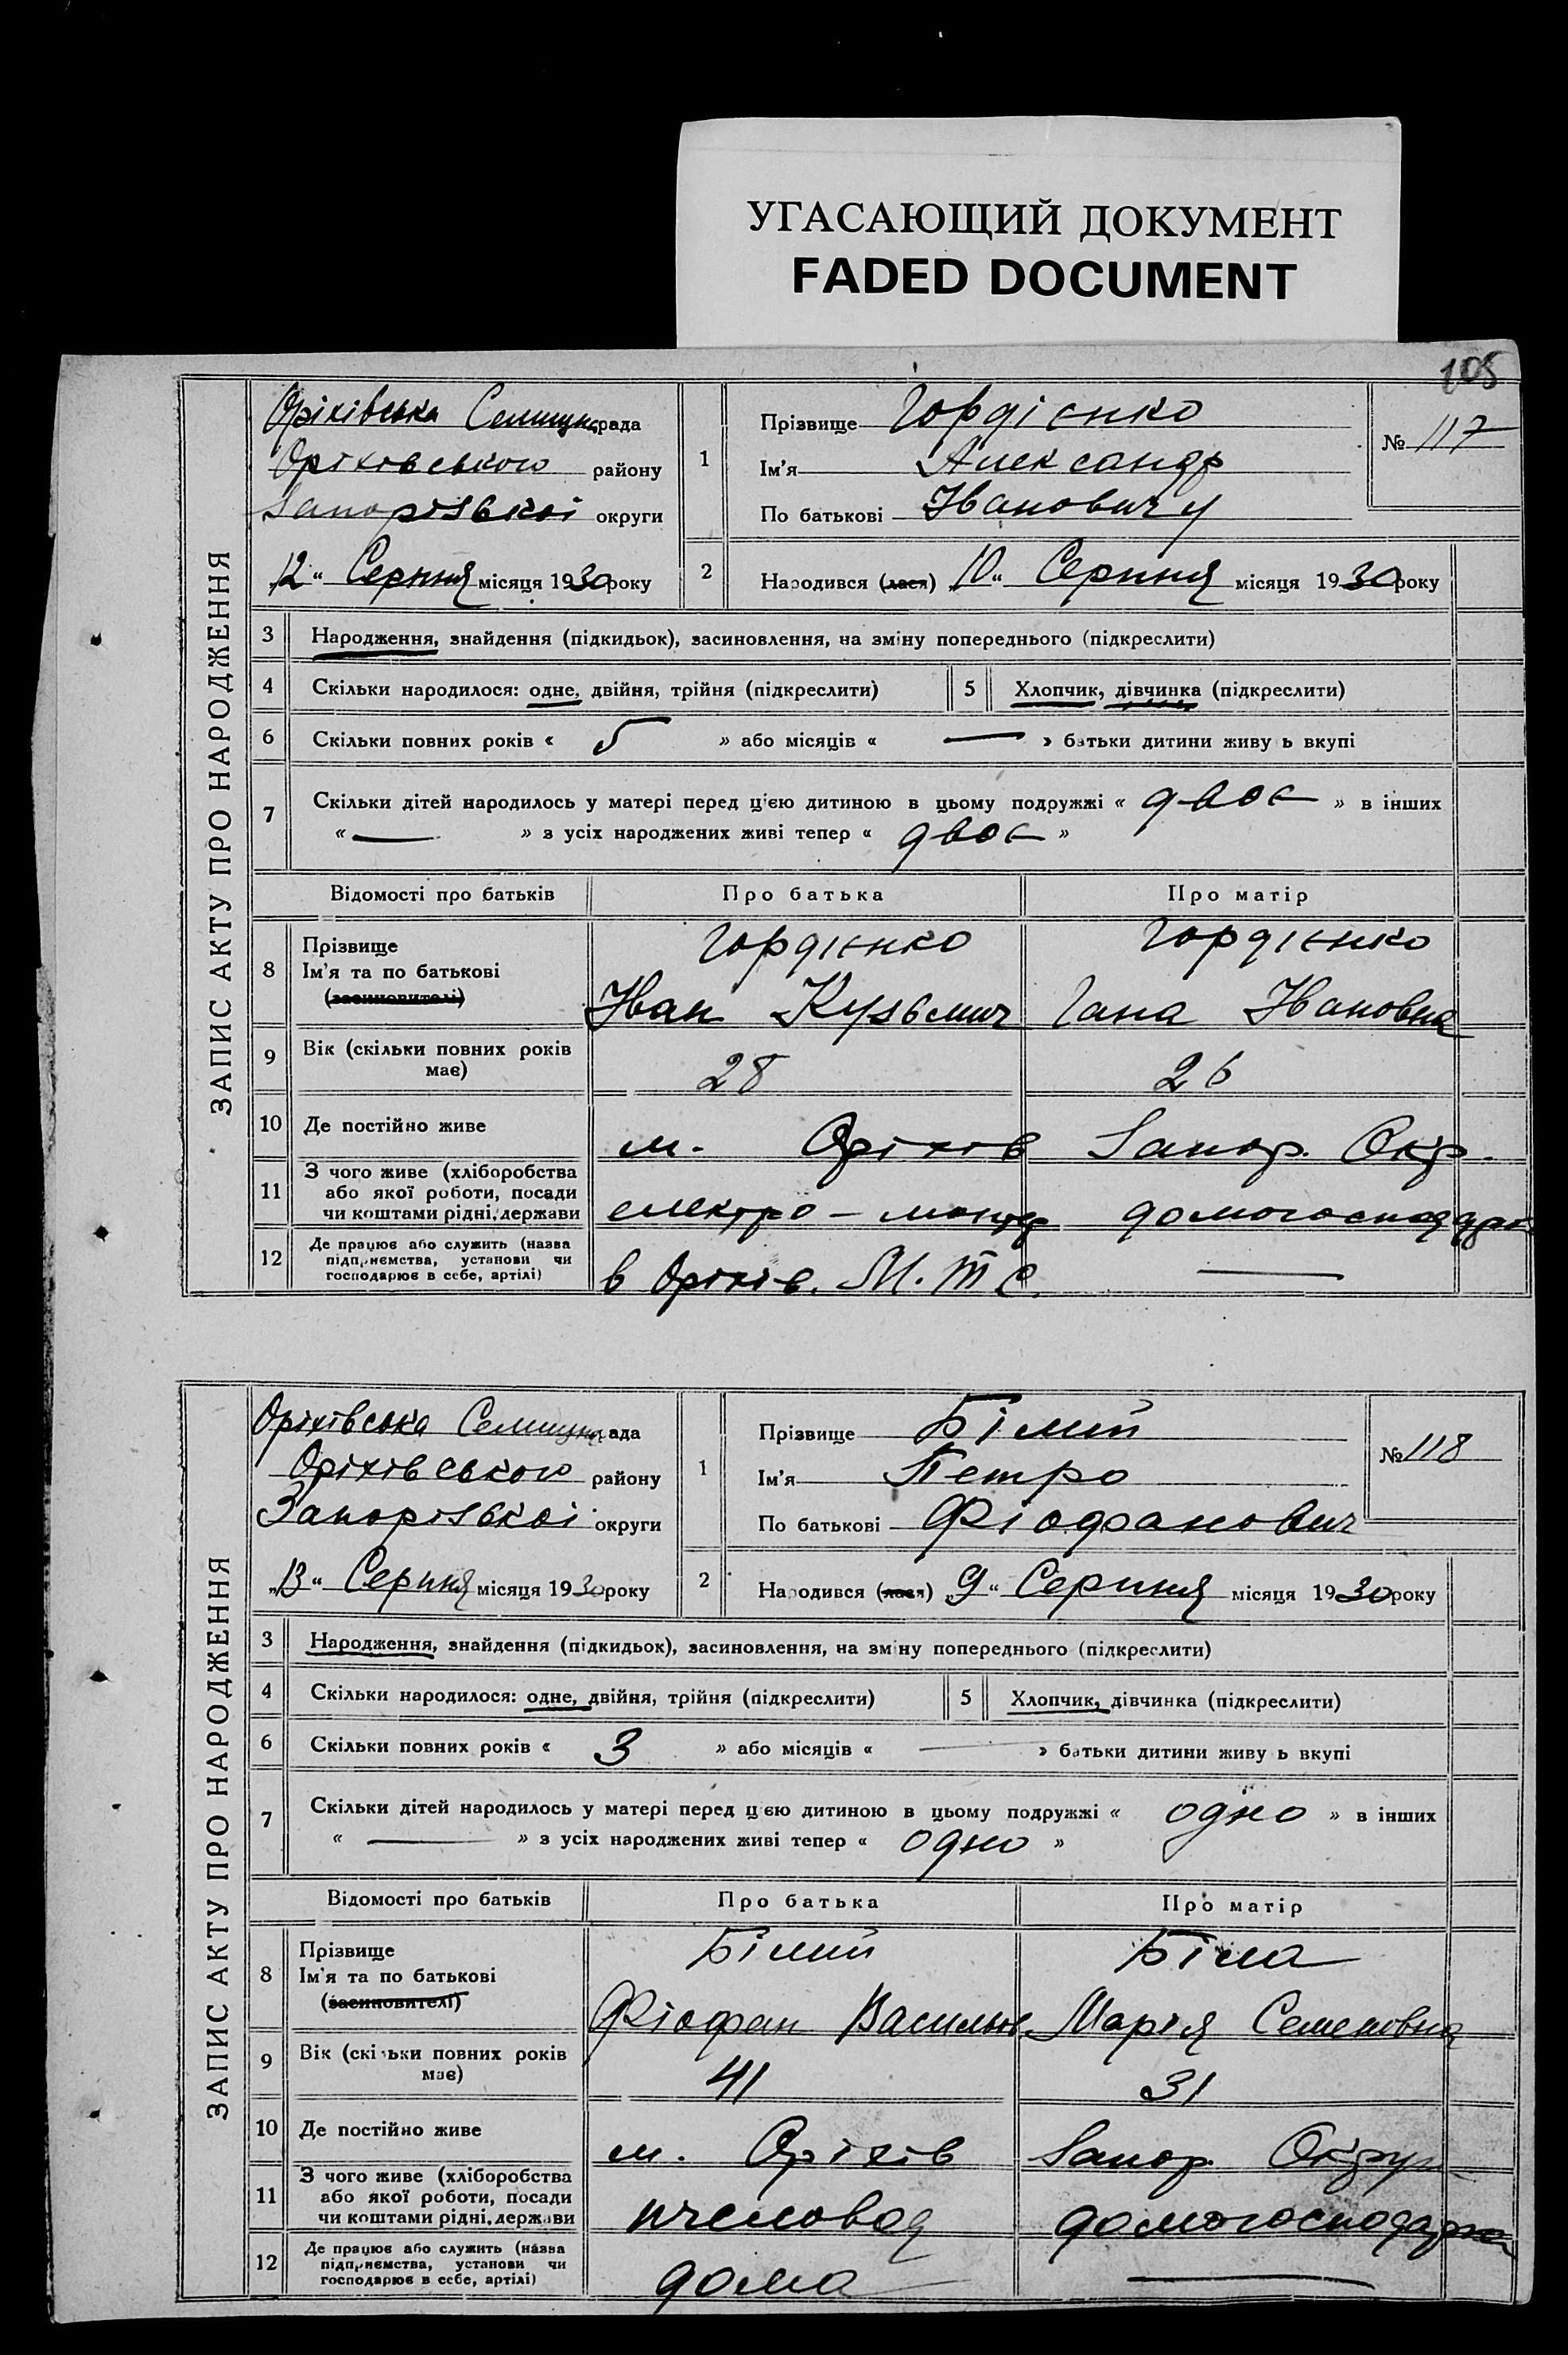 УГАСАЮЩИЙ ДОКУМЕНТ
FADED DOCUMENT
105
ЗАПИС АКТУ ПРО НАРОДЖЕННЯ
Оріхівська Селищна рада
Оріхівського району
Запорізької округи
„12“ Серпня місяця 1930 року
1
Прізвище Гордієнко
Ім'я Александр
По батькові Іванович
№ 117
2
Народився (лася) „10“ Серпня місяця 1930 року
3 Народження, знайдення (підкидьок), засиновлення, на зміну попереднього (підкреслити)
4 Скільки народилося: одне, двійня, трійня (підкреслити) 5 Хлопчик, дівчинка (підкреслити)
6 Скільки повних років « 5 » або місяців « — » батьки дитини живу ь вкупі
7 Скільки дітей народилось у матері перед ц'єю дитиною в цьому подружжі « двоє » в інших
« — » з усіх народжених живі тепер « двоє »
Відомості про батьків Про батька Про матір
8 Прізвище Гордієнко Гордієнко
Ім'я та по батькові Іван Кузьмич Гана Івановна
(засиновителі)
9 Вік (скільки повних років має) 28 26
10 Де постійно живе м. Оріхів Запор. Окр.
11 З чого живе (хліборобства
або якої роботи, посади
чи коштами рідні, держави електро-монтер домогосподарка
12 Де працює або служить (назва
підприємства, установи чи
господарює в себе, артілі) в Оріхів. М.Т.С. —
ЗАПИС АКТУ ПРО НАРОДЖЕННЯ
Оріхівська Селищна рада
Оріхівського району
Запорізької округи
„13“ Серпня місяця 1930 року
1
Прізвище Білий
Ім'я Петро
По батькові Фіофанович
№ 118
2
Народився (лася) „9“ Серпня місяця 1930 року
3 Народження, знайдення (підкидьок), засиновлення, на зміну попереднього (підкреслити)
4 Скільки народилося: одне, двійня, трійня (підкреслити) 5 Хлопчик, дівчинка (підкреслити)
6 Скільки повних років « 3 » або місяців « — » батьки дитини живу ь вкупі
7 Скільки дітей народилось у матері перед цією дитиною в цьому подружжі « одно » в інших
« — » з усіх народжених живі тепер « одно »
Відомості про батьків Про батька Про матір
8 Прізвище Білий Біла
Ім'я та по батькові Фіофан Василов. Марія Семеновна
(засиновителі)
9 Вік (скільки повних років має) 41 31
10 Де постійно живе м. Оріхів Запор. Округи
11 З чого живе (хліборобства
або якої роботи, посади
чи коштами рідні, держави пчеловод домогосподарка
12 Де працює або служить (назва
підприємства, установи чи
господарює в себе, артілі) дома —